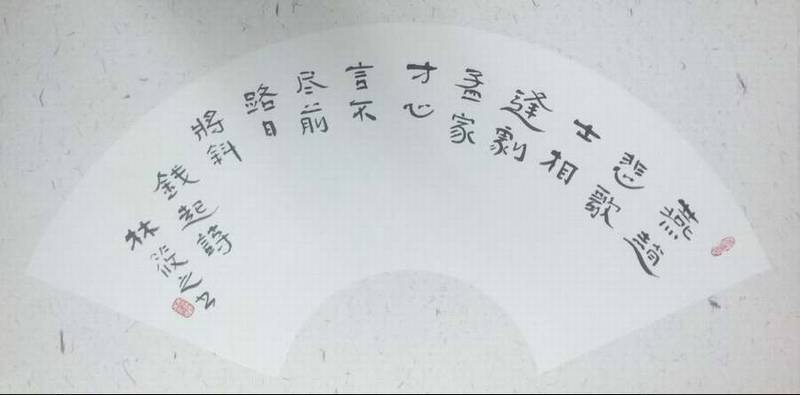 燕趙
悲歌
士相
逢劇
孟家
寸心
言不
尽前
路日
將斜
錢起詩
林筱之书